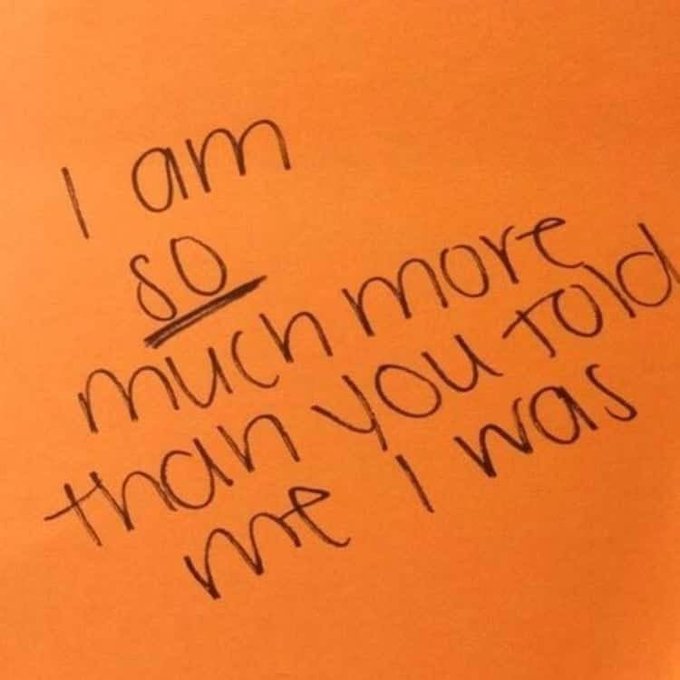 I am
so
much more
than you told
me I was